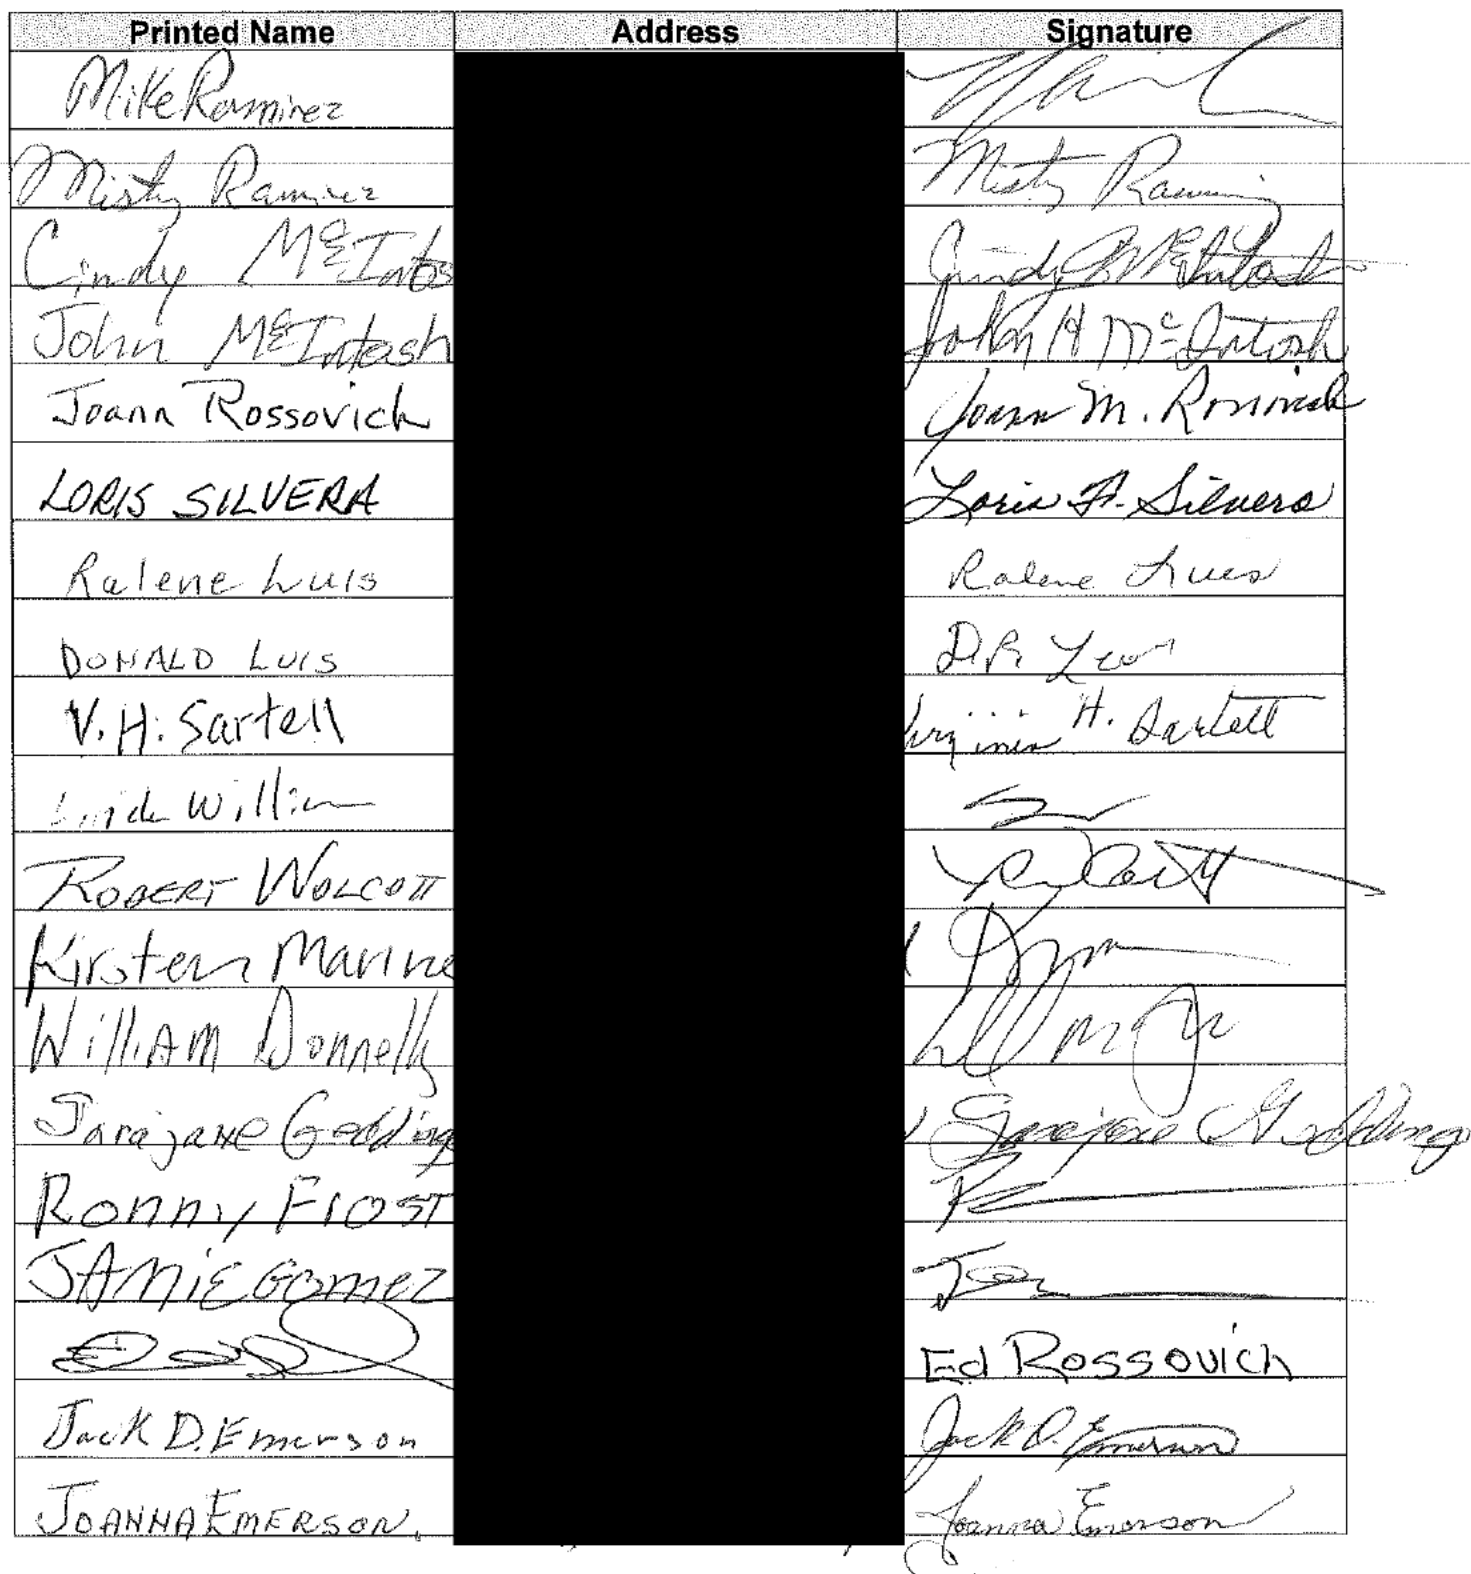 Printed Name Address Signature
Mike Ramirez
Misty Ramirez Misty Ramirez
Cindy McIntos Cindy McIntosh
John McIntosh John H McIntosh
Joann Rossovich Joann M. Rossovich
LORIS SILVERA Loris A. Silvera
Ralene Luis Ralene Luis
DONALD LUIS D.R.
V. H. Sartell Virginia H. Sartell
ROBERT WOLCOTT
Kirsten Marine
William Donnelly
Sarajane Geddings Sarajane Geddings
Ronny Frost
JAMIE Gomez
Ed Rossovich
Jack D. Emerson Jack D. Emerson
JOANNA EMERSON. Joanna Emerson